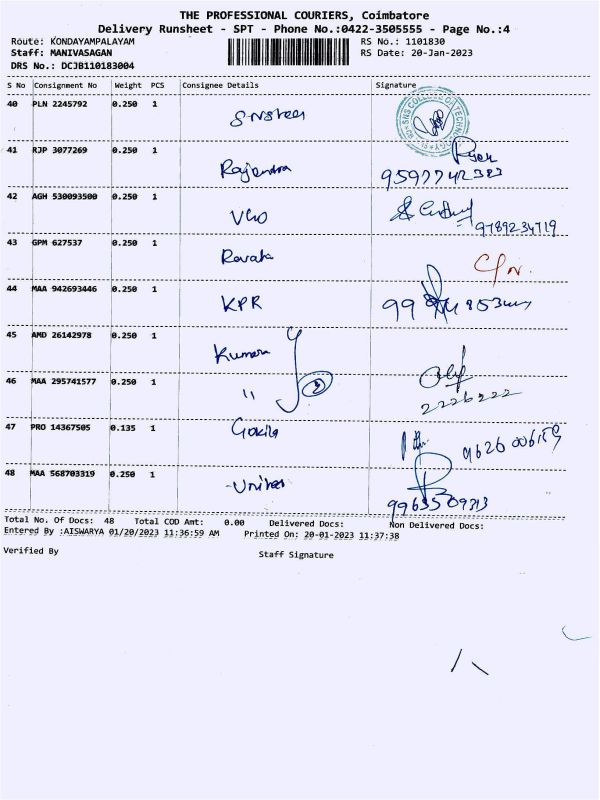 THE PROFESSIONAL COURIERS, Coimbatore
Delivery Runsheet - SPT - Phone No.:0422-3505555 - Page No.:4
Route: KONDAYAMPALAYAM RS No.: 1101830
Staff: MANIVASAGAN RS Date: 20-Jan-2023
DRS No.: DCJB110183004
S No Consignment No Weight PCS Consignee Details Signature
40 PLN 2245792 0.250 1
41 RJP 3077269 0.250 1 Rajendra
42 AGH 530093500 0.250 1 9789234719
43 GPM 627537 0.250 1
44 MAA 942693446 0.250 1 KPR
45 AMD 26142978 0.250 1 Kumara
46 MAA 295741577 0.250 1 " 2 2226222
47 PRO 14367505 0.135 1 Gokila
48 MAA 568703319 0.250 1
Total No. Of Docs: 48 Total COD Amt: 0.00 Delivered Docs: Non Delivered Docs:
Entered By :AISWARYA 01/20/2023 11:36:59 AM Printed On: 20-01-2023 11:37:38
Verified By Staff Signature